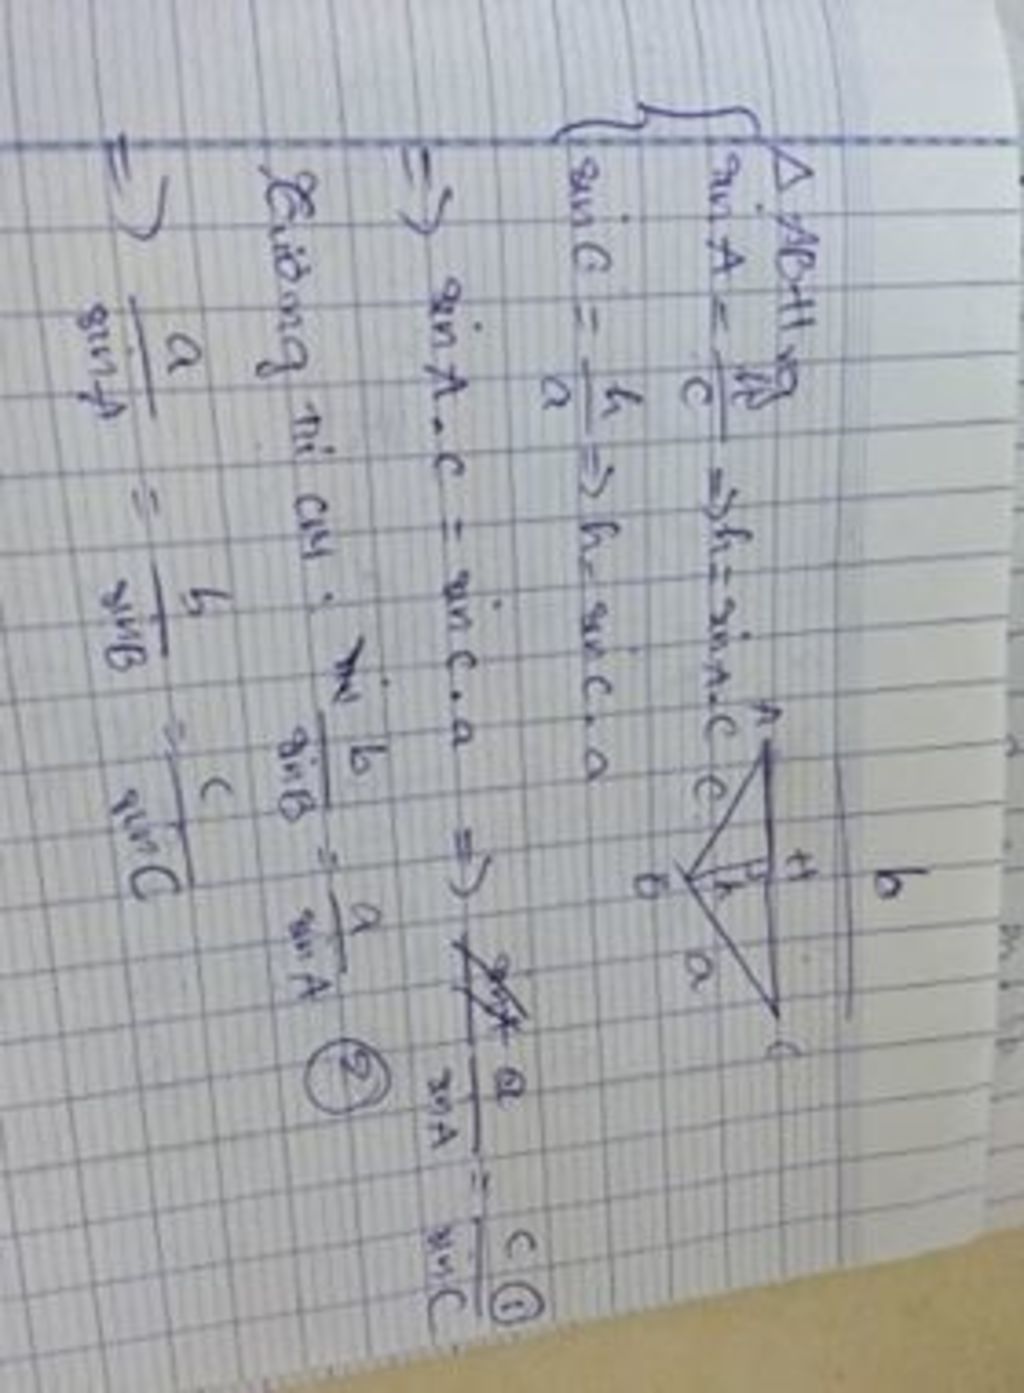 b
Δ ABH vg
A H C
sin A = h/c => h = sin A . c
c h a
B
sin C = h/a => h = sin C . a
=> sin A . c = sin C . a => a/sin A = c/sin C ①
Tương tự CM : b/sin B = a/sin A ②
=> a/sin A = b/sin B = c/sin C